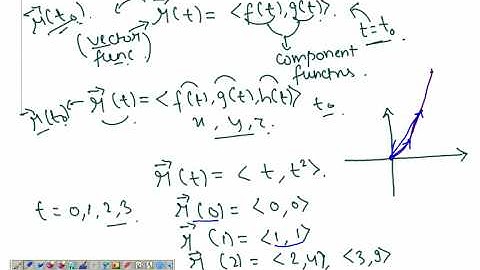 r⃗(t₀) r⃗(t) = <f(t), g(t)>.
(vector func) component functns t = t₀
r⃗(t₀) r⃗(t) = <f(t), g(t), h(t)> t₀
x, y, z
r⃗(t) = <t, t²>.
t = 0, 1, 2, 3 r⃗(0) = <0, 0>
r⃗(1) = <1, 1>
r⃗(2) = <2, 4>, <3, 9>